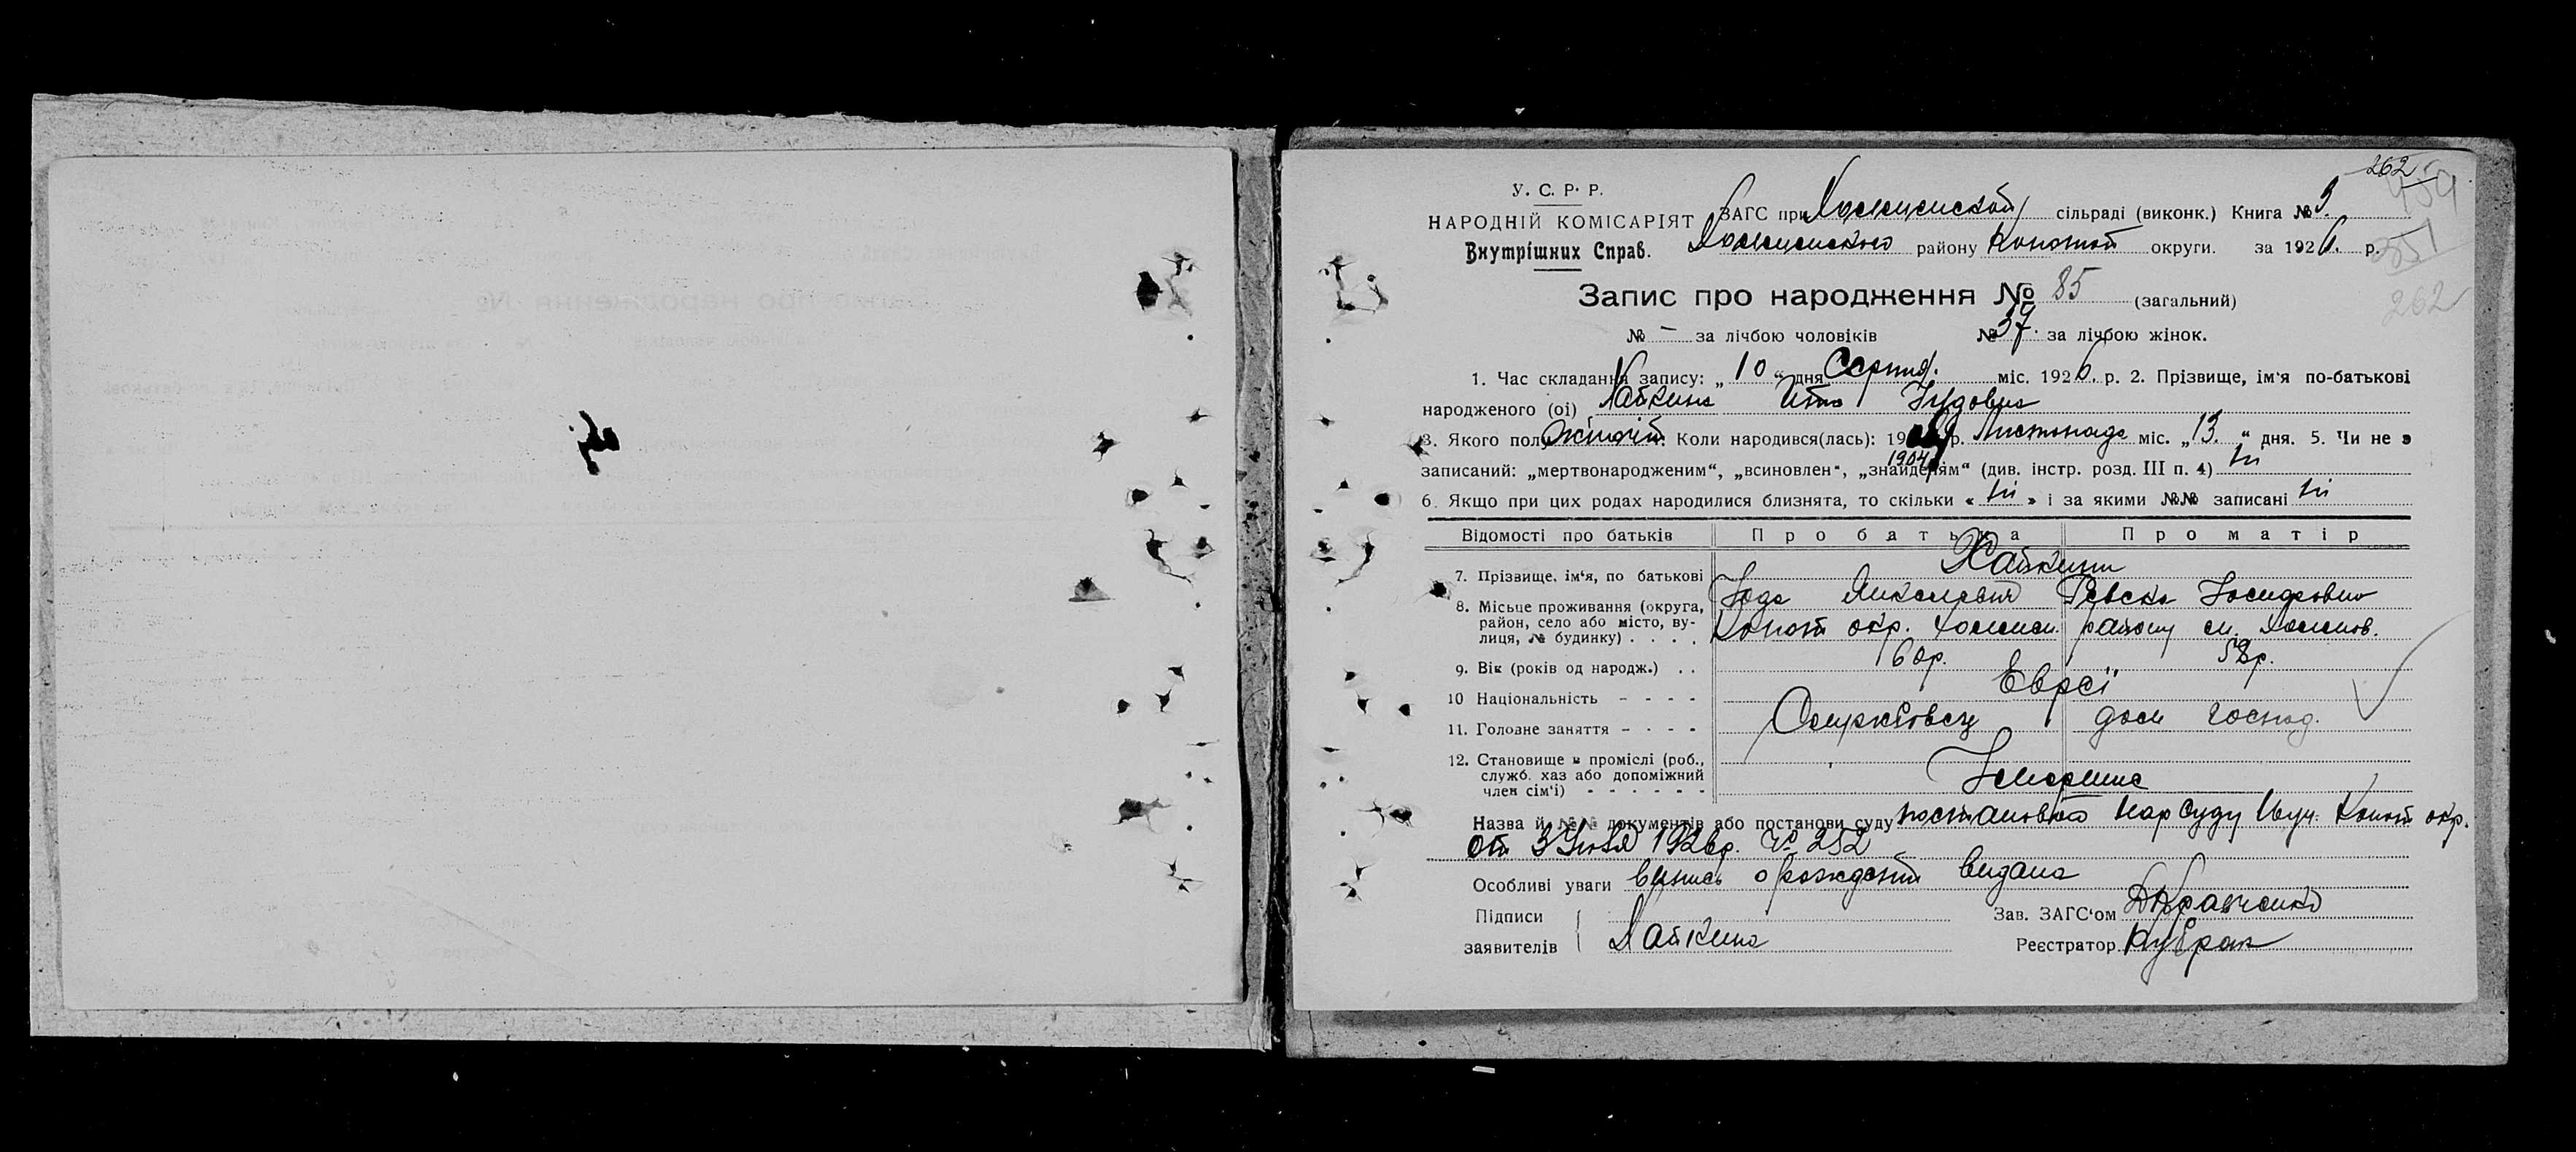 262
459
351
262
У. С. Р. Р.
НАРОДНІЙ КОМІСАРІЯТ
Внутрішних Справ.
ЗАГС при Хомминской сільраді (виконк.) Книга № 3.
району Конотоп округи. за 1926. р.
Запис про народження № 85 (загальний)
№ – за лічбою чоловіків № 37. за лічбою жінок.
1. Час складання запису: „10“ дня Серпня. міс. 1926. р. 2. Прізвище, ім'я по-батькові
народженого (ої) Хайкина Ита Іудовна
3. Якого полу жіночій. Коли народився(лась): 19 р. Листопада міс. „13.“ дня. 5. Чи не э
1904
записаний: „мертвонародженим“, „всиновлен“, „знайденям“ (див. інстр. розд. III п. 4) ні
6. Якщо при цих родах народилися близнята, то скільки « ні » і за якими №№ записані ні
Відомості про батьків Про батька Про матір
Хайкини
7. Прізвище, ім'я, по батькові
Іосифовна
8. Місьце проживання (округа, район, село або місто, вулиця, № будинку) . . . .
Конот окр. району
9. Вік (років од народж.) . . 60р. 58р.
10 Національність - - - - Евреї
11. Головне заняття - - - - дом господ.
12. Становище в промислі (роб., служб. хаз або допоміжний член сім'ї) - - - - - -
Назва й №№ документів або постанови суду постановою Нарсуду Конот окр.
от 3 Июля 1926р. № 252
Особливі уваги выпись о рождени видана
Підписи
заявителів Хайкина
Зав. ЗАГС'ом Кравченко
Реєстратор Кубрак